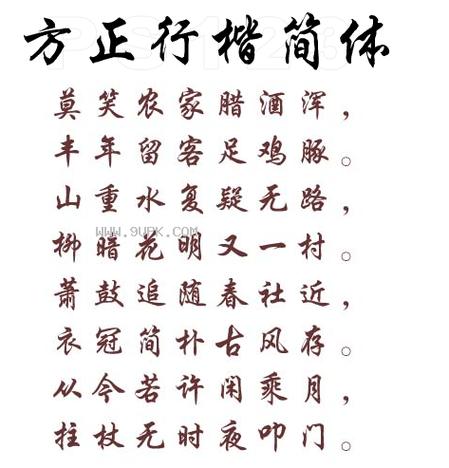 方正行楷简体
莫笑农家腊酒浑，
丰年留客足鸡豚。
山重水复疑无路，
柳暗花明又一村。
WWW.9UPK.COM
萧鼓追随春社近，
衣冠简朴古风存。
从今若许闲乘月，
拄杖无时夜叩门。